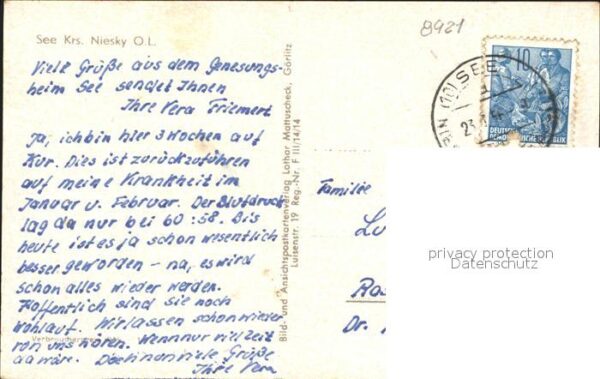 See Krs. Niesky O.L.
8921
Viele Grüße aus dem Genesungs-
heim See sendet Ihnen
Ihre Vera Triemert
Ja, ich bin hier 3 Wochen auf
Kur. Dies ist zurückzuführen
auf meine Krankheit im
Januar u. Februar. Der Blutdruck
lag da nur bei 60:58. Bis
heute ist es ja schon wesentlich
besser geworden – na, es wird
schon alles wieder werden.
Hoffentlich sind sie noch
wohlauf. Wir lassen schon wieder
von uns hören. Wenn nur viel Zeit
da wäre. Doch nun viele Grüße
Ihre Vera
Bild- und Ansichtspostkartenverlag Lothar Mattuscheck, Görlitz
Luisenstr. 19 Reg.-Nr. F III/14/14
SEE
10
DEUTSCHE
DEMOKRATISCHE REPUBLIK
Familie
Lu
Ros
Dr.
privacy protection
Datenschutz